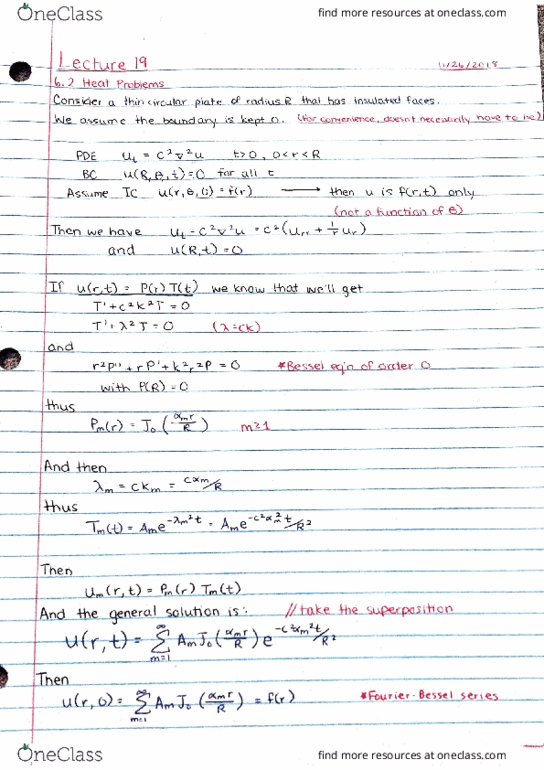 OneClass
find more resources at oneclass.com
Lecture 19
11/26/2018
6.2 Heat Problems
Consider a thin circular plate of radius R that has insulated faces.
We assume the boundary is kept 0. (for convenience, doesn't necessarily have to be)
PDE u_t = c²∇²u t>0, 0<r<R
BC u(R,θ,t)=0 for all t
Assume IC u(r,θ,0)=f(r) → then u is f(r,t) only
(not a function of θ)
Then we have u_t = c²∇²u = c²(u_rr + 1/r u_r)
and u(R,t)=0
If u(r,t) = P(r)T(t) we know that we'll get
T' + c²k²T = 0
T' + λ²T = 0 (λ=ck)
and
r²P'' + rP' + k²r²P = 0 *Bessel eq'n of order 0
with P(R)=0
thus
P_m(r) = J_0(α_m r/R) m≥1
And then
λ_m = ck_m = cα_m/R
thus
T_m(t) = A_m e^(-λ_m² t) = A_m e^(-c²α_m² t/R²)
Then
u_m(r,t) = P_m(r) T_m(t)
And the general solution is: //take the superposition
u(r,t) = ∑_{m=1}^∞ A_m J_0(α_m r/R) e^(-c²α_m² t/R²)
Then
u(r,0) = ∑_{m=1}^∞ A_m J_0(α_m r/R) = f(r) *Fourier-Bessel series
OneClass
find more resources at oneclass.com